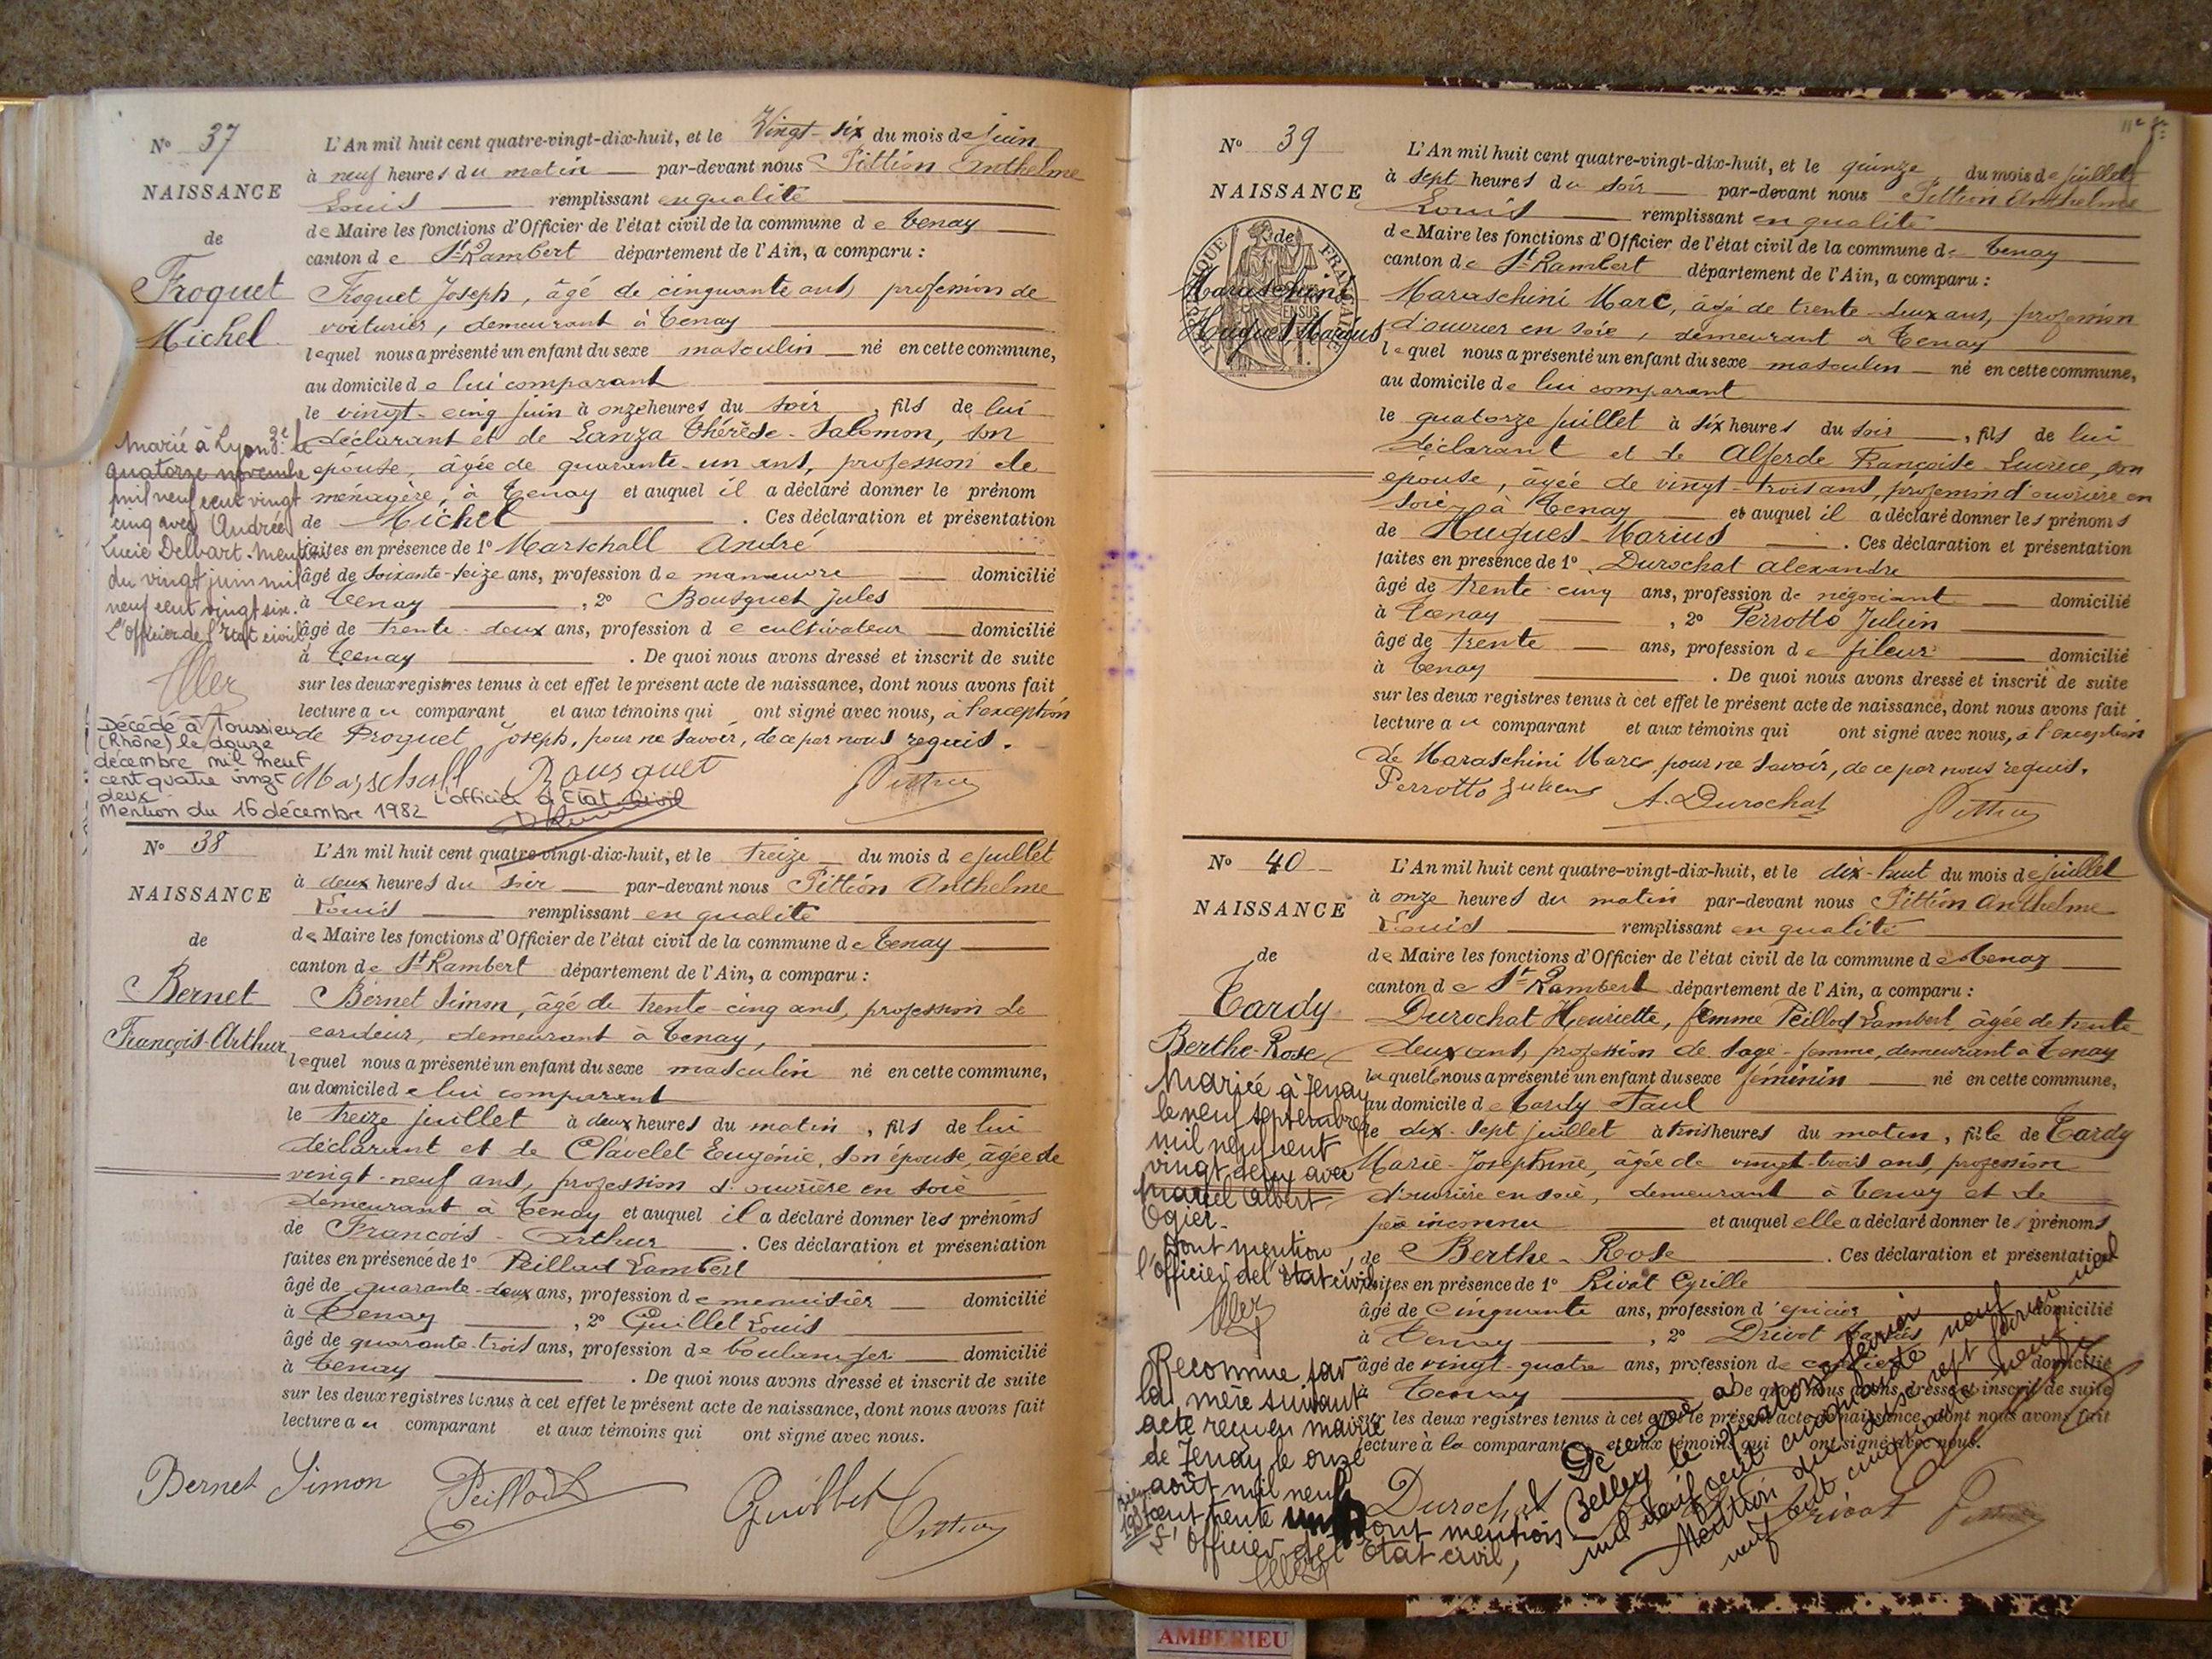 N° 37
NAISSANCE
de
Froquet
Michel
L'An mil huit cent quatre-vingt-dix-huit, et le Vingt-six du mois de juin
à neuf heures du matin par-devant nous Pittion Anthelme
Louis remplissant en qualité
de Maire les fonctions d'Officier de l'état civil de la commune de Tenay
canton de St Rambert département de l'Ain, a comparu :
Froquet Joseph, âgé de cinquante ans, profession de
voiturier, demeurant à Tenay
lequel nous a présenté un enfant du sexe masculin né en cette commune,
au domicile de lui comparant
le vingt-cinq juin à onze heures du soir, fils de lui
déclarant et de Lanza Thérèse-Salomon, son
épouse, âgée de quarante-un ans, profession de
ménagère, à Tenay et auquel il a déclaré donner le prénom
de Michel. Ces déclaration et présentation
faites en présence de 1° Marschall André
âgé de soixante-seize ans, profession de manœuvre domicilié
à Tenay, 2° Bousquet Jules
âgé de trente-deux ans, profession de cultivateur domicilié
à Tenay. De quoi nous avons dressé et inscrit de suite
sur les deux registres tenus à cet effet le présent acte de naissance, dont nous avons fait
lecture au comparant et aux témoins qui ont signé avec nous, à l'exception
de Froquet Joseph, pour ne savoir, de ce par nous requis.
Marschall Bousquet Pittion
Marié à Lyon 3e le
quatorze novembre
mil neuf cent vingt
cinq avec Andrée
Lucie Delbart. Mention
du vingt juin mil
neuf cent vingt six.
L'Officier de l'Etat civil
Décédé à Toussieu
(Rhône) le douze
décembre mil neuf
cent quatre vingt
deux
Mention du 16 décembre 1982
L'officier d'Etat Civil
N° 38
NAISSANCE
de
Bernet
François-Arthur
L'An mil huit cent quatre-vingt-dix-huit, et le treize du mois de juillet
à deux heures du soir par-devant nous Pittion Anthelme
Louis remplissant en qualité
de Maire les fonctions d'Officier de l'état civil de la commune de Tenay
canton de St Rambert département de l'Ain, a comparu :
Bernet Simon, âgé de trente-cinq ans, profession de
cardeur, demeurant à Tenay,
lequel nous a présenté un enfant du sexe masculin né en cette commune,
au domicile de lui comparant
le treize juillet à deux heures du matin, fils de lui
déclarant et de Clavelet Eugénie, son épouse, âgée de
vingt-neuf ans, profession d'ouvrière en soie
demeurant à Tenay et auquel il a déclaré donner les prénoms
de François-Arthur. Ces déclaration et présentation
faites en présence de 1° Peillod Lambert
âgé de quarante-deux ans, profession de menuisier domicilié
à Tenay, 2° Guillet Louis
âgé de quarante-trois ans, profession de boulanger domicilié
à Tenay. De quoi nous avons dressé et inscrit de suite
sur les deux registres tenus à cet effet le présent acte de naissance, dont nous avons fait
lecture au comparant et aux témoins qui ont signé avec nous.
Bernet Simon Peillod Guillet Pittion
N° 39
NAISSANCE
de
Maraschini
Hugues, Marius
L'An mil huit cent quatre-vingt-dix-huit, et le quinze du mois de juillet
à sept heures du soir par-devant nous Pittion Anthelme
Louis remplissant en qualité
de Maire les fonctions d'Officier de l'état civil de la commune de Tenay
canton de St Rambert département de l'Ain, a comparu :
Maraschini Marc, âgé de trente-deux ans, profession
d'ouvrier en soie, demeurant à Tenay
lequel nous a présenté un enfant du sexe masculin né en cette commune,
au domicile de lui comparant
le quatorze juillet à six heures du soir, fils de lui
déclarant et de Alferde Françoise-Lucrèce, son
épouse, âgée de vingt-trois ans, profession d'ouvrière en
soie, à Tenay et auquel il a déclaré donner les prénoms
de Hugues-Marius. Ces déclaration et présentation
faites en présence de 1° Durochat Alexandre
âgé de trente-cinq ans, profession de négociant domicilié
à Tenay, 2° Perrotto Julien
âgé de trente ans, profession de fileur domicilié
à Tenay. De quoi nous avons dressé et inscrit de suite
sur les deux registres tenus à cet effet le présent acte de naissance, dont nous avons fait
lecture au comparant et aux témoins qui ont signé avec nous, à l'exception
de Maraschini Marc, pour ne savoir, de ce par nous requis.
Perrotto Julien A. Durochat Pittion
N° 40
NAISSANCE
de
Tardy
Berthe-Rose
L'An mil huit cent quatre-vingt-dix-huit, et le dix-huit du mois de juillet
à onze heures du matin par-devant nous Pittion Anthelme
Louis remplissant en qualité
de Maire les fonctions d'Officier de l'état civil de la commune de Tenay
canton de St Rambert département de l'Ain, a comparu :
Durochat Henriette, femme Peillod Lambert, âgée de trente
deux ans, profession de sage-femme, demeurant à Tenay
laquelle nous a présenté un enfant du sexe féminin né en cette commune,
au domicile de Tardy Paul
le dix-sept juillet à trois heures du matin, fille de Tardy
Marie-Joséphine, âgée de vingt-trois ans, profession
d'ouvrière en soie, demeurant à Tenay et de
père inconnu et auquel elle a déclaré donner les prénoms
de Berthe-Rose. Ces déclaration et présentation
faites en présence de 1° Rivat Cyrille
âgé de cinquante ans, profession d'épicier domicilié
à Tenay, 2° Drivot
âgé de vingt-quatre ans, profession de domicilié
à Tenay. De quoi nous avons dressé et inscrit de suite
sur les deux registres tenus à cet effet le présent acte de naissance, dont nous avons fait
lecture à la comparante et aux témoins qui ont signé avec nous.
Durochat Drivot Pittion
Mariée à Tenay
le neuf septembre
mil neuf cent
vingt deux avec
Marcel Albert
Ogier.
Dont mention
l'Officier de l'Etat civil
Reconnue par
la mère suivant
acte reçu en mairie
de Tenay le onze
août mil neuf
cent trente un
Dont mention
L'Officier de l'Etat civil,
Décédée à
Belley le quatorze février
mil neuf cent cinquante neuf
Mention du dix sept février mil
neuf cent cinquante neuf
AMBERIEU